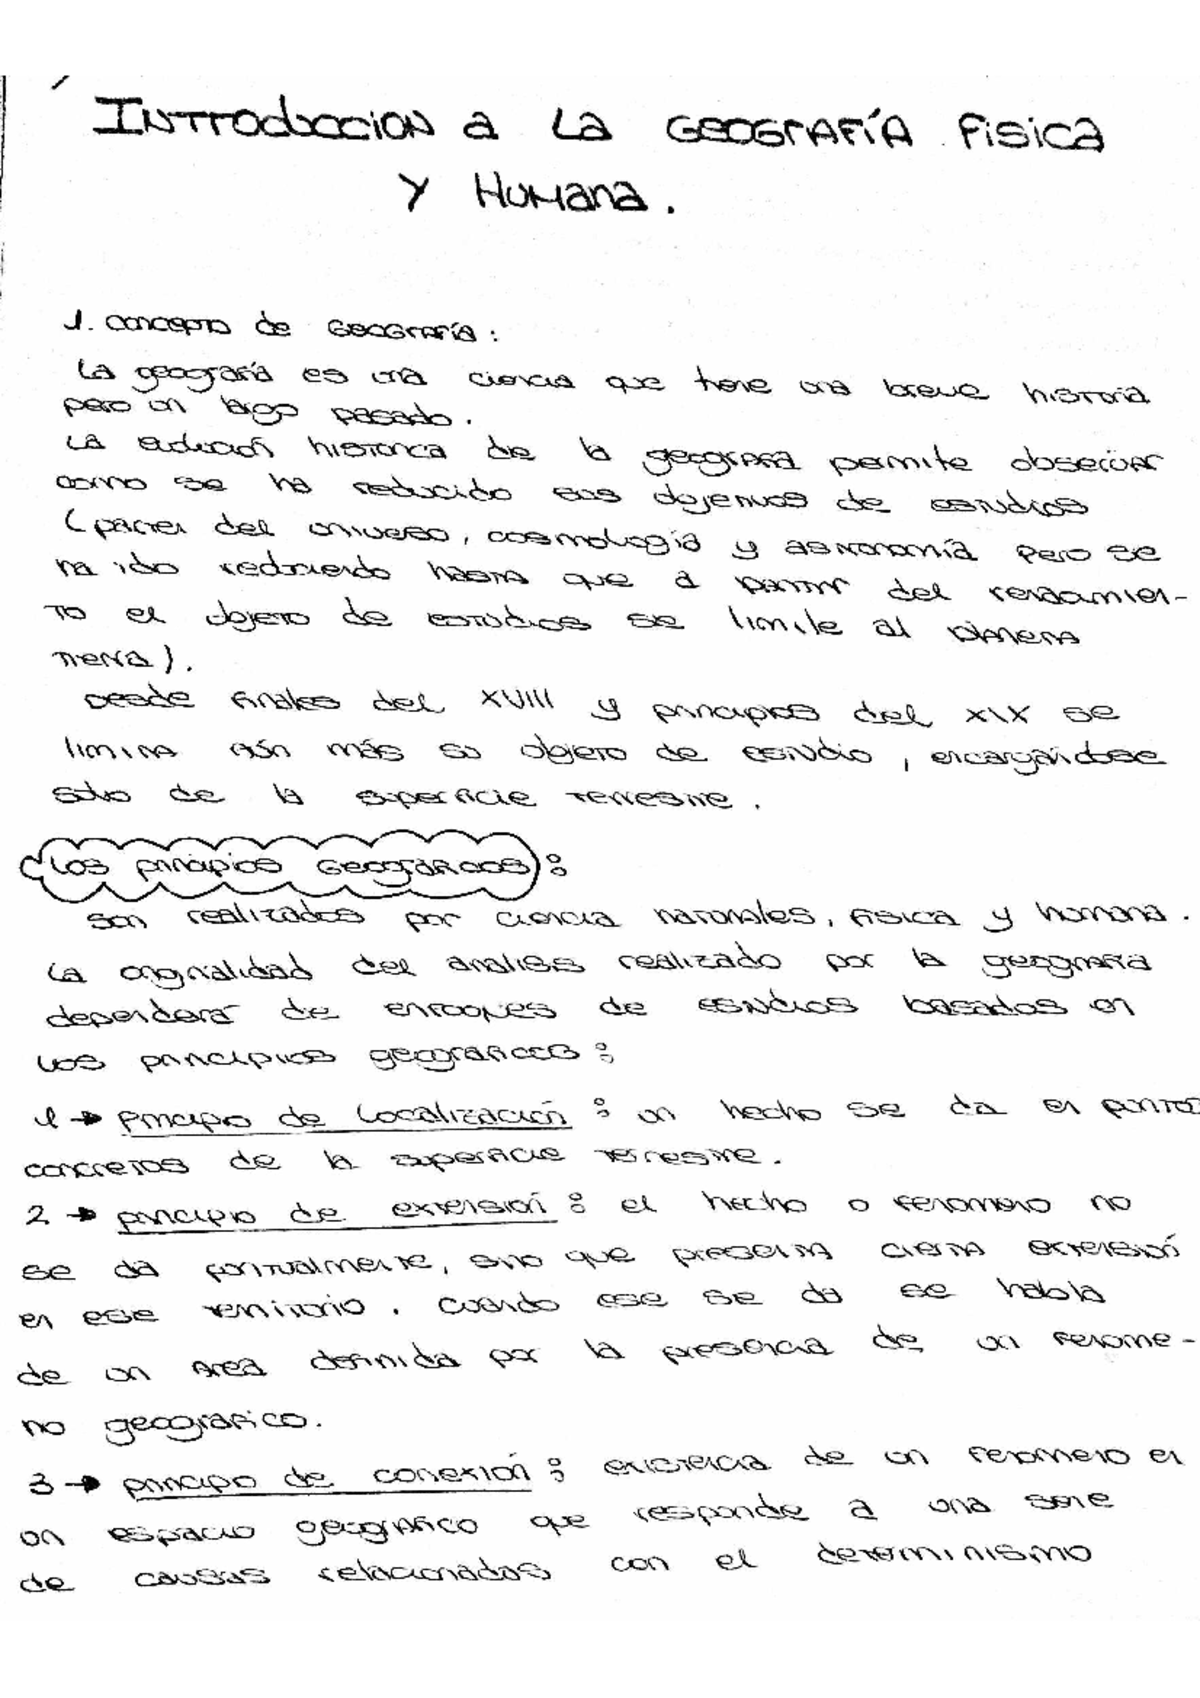 Introduccion a la Geografía Fisica
y Humana.
1. Concepto de Geografía:
La geografía es una ciencia que tiene una breve historia
pero un largo pasado.
La evolución historica de la geografía permite observar
como se ha reducido sus objetivos de estudios
(partes del universo, cosmologia y astronomía pero se
ha ido reduciendo hasta que a partir del renacimien-
to el objeto de estudios se limite al planeta
tierra).
Desde finales del XVIII y principios del XIX se
limita aún más su objeto de estudio, encargándose
solo de la superficie terrestre.
Los principios Geográficos:
Son realizados por ciencia naturales, fisica y humana.
La originalidad del analisis realizado por la geografia
dependerá de enfoques de estudios basados en
los principios geograficos:
1→ Principio de Localización: un hecho se da en puntos
concretos de la superficie terrestre.
2→ principio de extensión: el hecho o fenomeno no
se da puntualmente, sino que presenta cierta extensión
en ese territorio. Cuando ese se da se habla
de un area definida por la presencia de un fenome-
no geografico.
3→ principio de conexión: existencia de un fenomeno en
un espacio geográfico que responde a una serie
de causas relacionadas con el determinismo